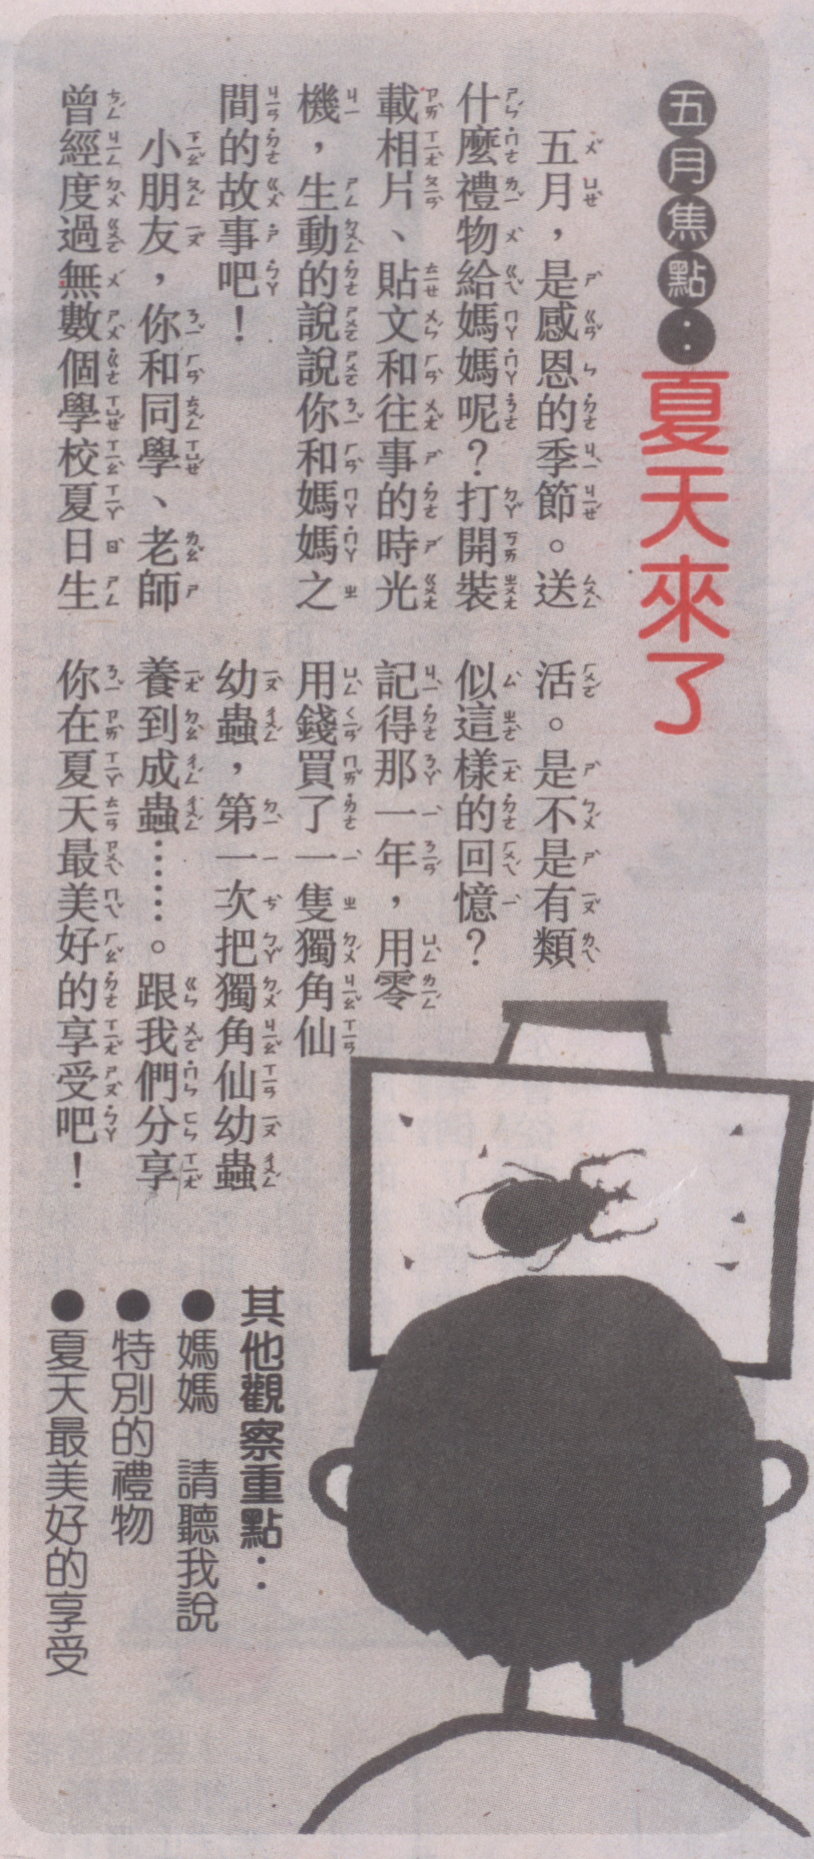 五月焦點：夏天來了
五月，是感恩的季節。送
什麼禮物給媽媽呢？打開裝
載相片、貼文和往事的時光
機，生動的說說你和媽媽之
間的故事吧！
小朋友，你和同學、老師
曾經度過無數個學校夏日生
活。是不是有類
似這樣的回憶？
記得那一年，用零
用錢買了一隻獨角仙
幼蟲，第一次把獨角仙幼蟲
養到成蟲……。跟我們分享
你在夏天最美好的享受吧！
其他觀察重點：
●媽媽　請聽我說
●特別的禮物
●夏天最美好的享受